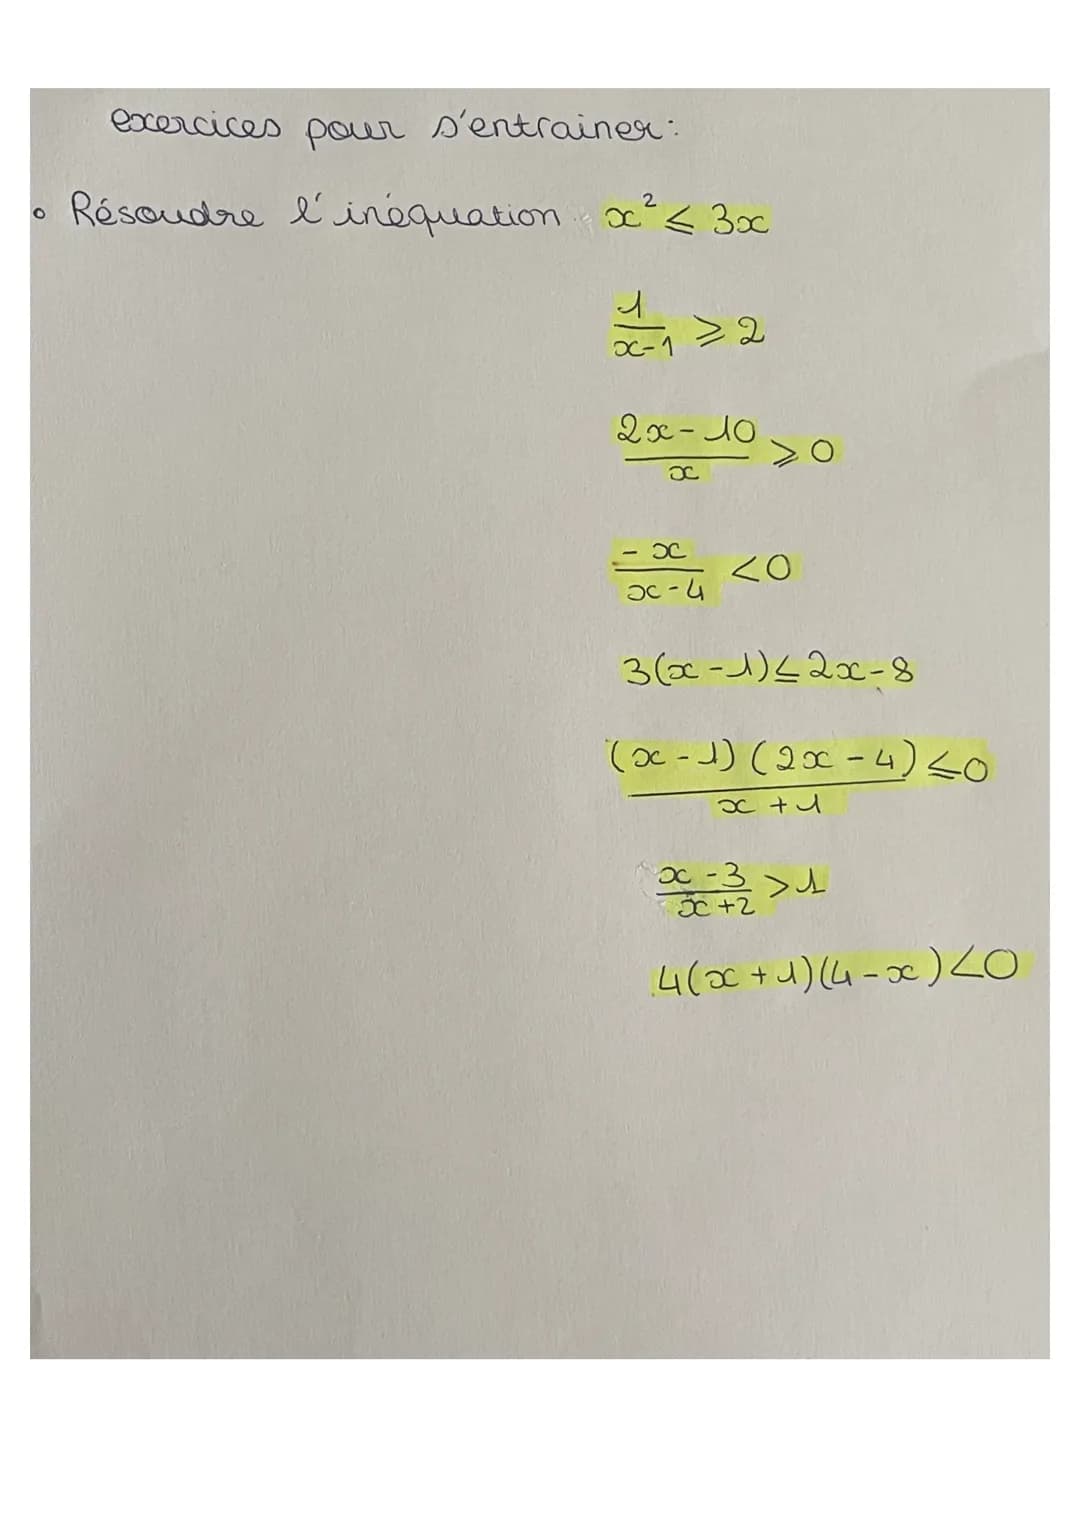 exercices pour s'entrainer:
• Résoudre l'inéquation : x² ≤ 3x
1/(x-1) ⩾ 2
(2x-10)/x ⩾ 0
-x/(x-4) < 0
3(x-1) ≤ 2x-8
(x-1)(2x-4)/(x+1) ≤ 0
(x-3)/(x+2) > 1
4(x+1)(4-x) < 0